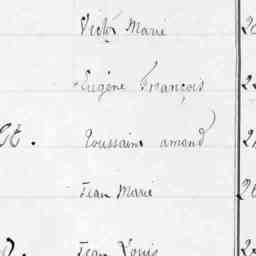 Victor Marie
Eugène François
Toussaint amand
Jean Marie
Jean Louis